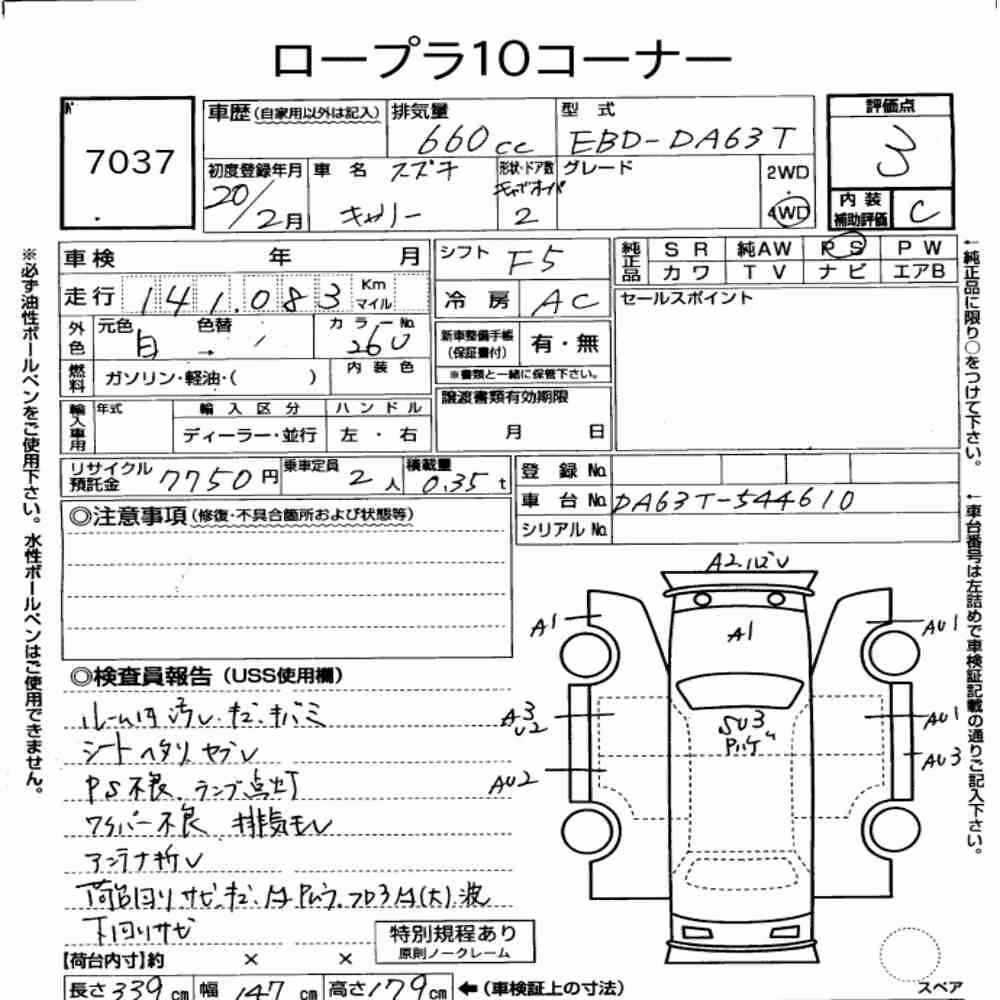 ロープラ10コーナー
№ 7037
車歴(自家用以外は記入)
排気量 660cc
型式 EBD-DA63T
評価点 3
初度登録年月 20/2月
車名 スズキ キャリー
形状・ドア数 2
グレード
2WD・4WD
内装補助評価 C
車検 年 月
シフト F5
純正品 SR 純AW PS PW
カワ TV ナビ エアB
走行 141,083 Km マイル
冷房 AC
セールスポイント
外色 元色 白 → 色替 カラーNo. 26U
新車整備手帳(保証書付) 有・無
※書類と一緒に保管下さい。
燃料 ガソリン・軽油・( ) 内装色
輸入車用 年式 輸入区分 ハンドル
ディーラー・並行 左・右
譲渡書類有効期限
月 日
リサイクル預託金 7750円 乗車定員 2人 積載量 0.35t
登録No.
車台No. DA63T-544610
シリアルNo.
◎注意事項(修復・不具合箇所および状態等)
A2
A1
A1
AU1
A3
U2
SU3
AU1
AU2
AU3
◎検査員報告(USS使用欄)
ルーム内汚レ、キズ、キバミ
シートヘタリ ヤブレ
PS不良 ランプ点灯
ワイパー不良 排気モレ
アンテナ折レ
下回りサビ
特別規程あり
原則ノークレーム
【荷台内寸】約 × ×
長さ339cm 幅147cm 高さ179cm ←(車検証上の寸法)
スペア
※必ず油性ボールペンをご使用下さい。水性ボールペンはご使用できません。
←純正品に限り○をつけて下さい。
←車台番号は左詰めで車検証記載の通りご記入下さい。